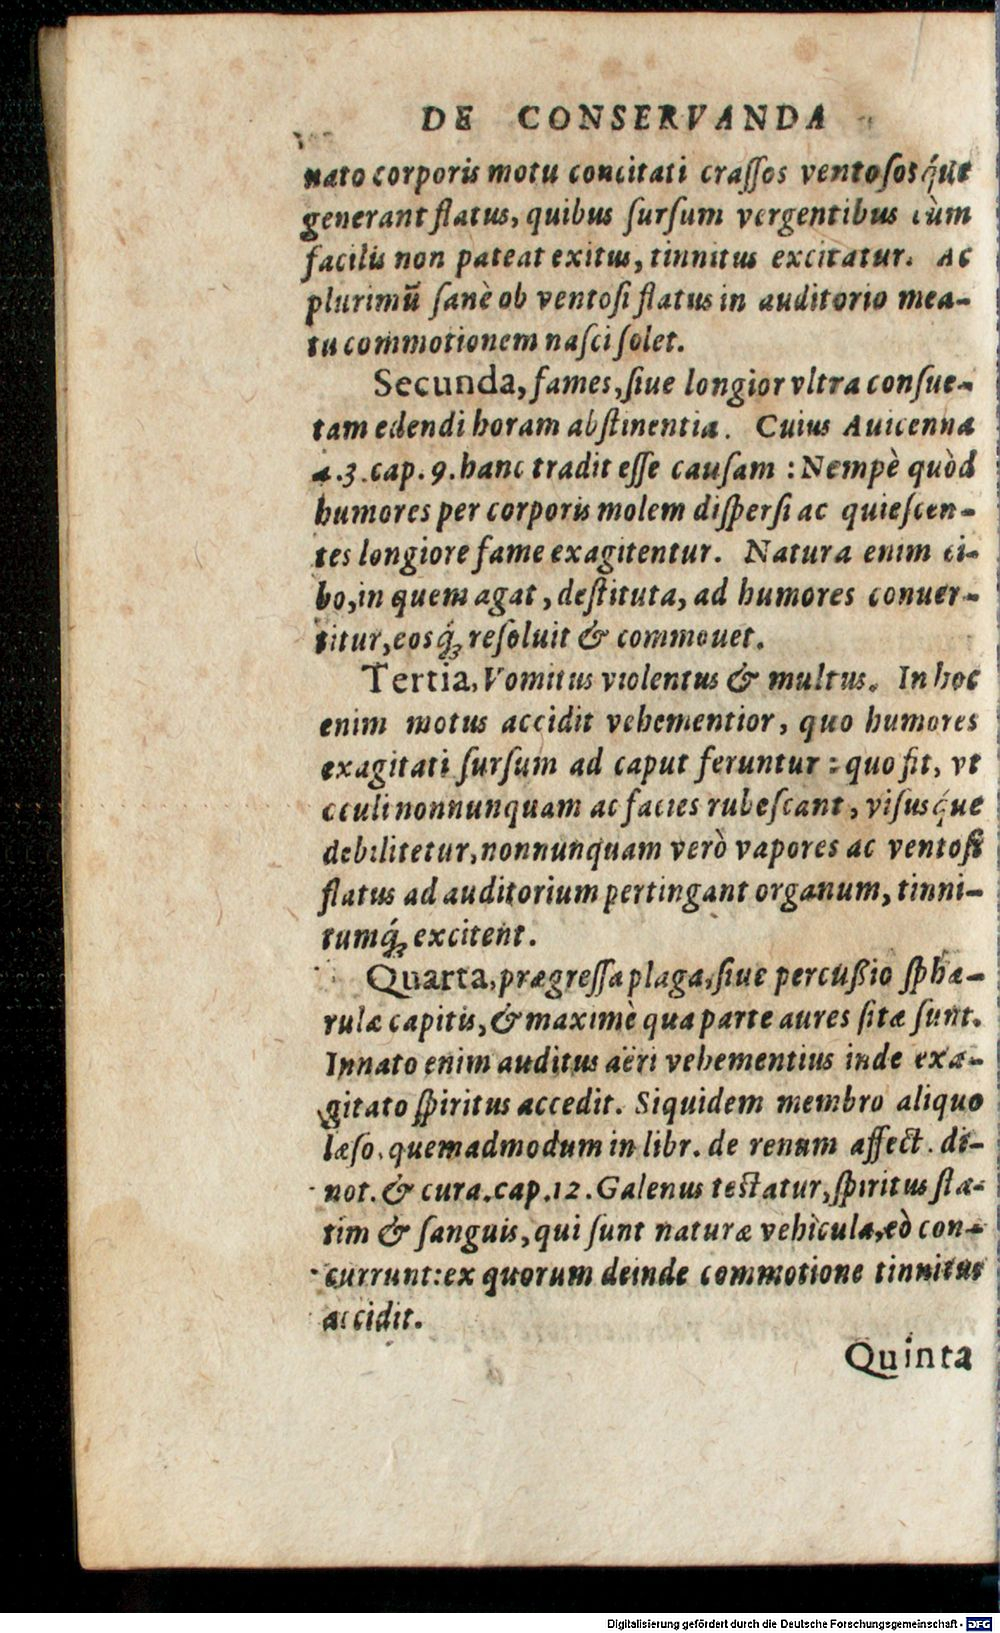 DE CONSERVANDA
nato corporis motu concitati crassos ventososq́ue
generant flatus, quibus sursum vergentibus cùm
facilis non pateat exitus, tinnitus excitatur. Ac
plurimū sanè ob ventosi flatus in auditorio mea-
tu commotionem nasci solet.
Secunda, fames, siue longior vltra consue-
tam edendi horam abstinentia. Cuius Auicenna
4.3.cap.9. hanc tradit esse causam : Nempè quòd
humores per corporis molem dispersi ac quiescen-
tes longiore fame exagitentur. Natura enim ci-
bo, in quem agat, destituta, ad humores conuer-
titur, eosq́; resoluit & commouet.
Tertia, Vomitus violentus & multus. In hoc
enim motus accidit vehementior, quo humores
exagitati sursum ad caput feruntur : quo fit, vt
oculi nonnunquam ac facies rubescant, visusq́ue
debilitetur, nonnunquam verò vapores ac ventosi
flatus ad auditorium pertingant organum, tinni-
tumq́; excitent.
Quarta, prægressa plaga, siue percußio sphæ-
rulæ capitis, & maximè qua parte aures sitæ sunt.
Innato enim auditus aëri vehementius inde exa-
gitato spiritus accedit. Siquidem membro aliquo
læso, quemadmodum in libr. de renum affect. di-
not. & cura. cap. 12. Galenus testatur, spiritus sta-
tim & sanguis, qui sunt naturæ vehicula, eò con-
currunt: ex quorum deinde commotione tinnitus
accidit.
Quinta
Digitalisierung gefördert durch die Deutsche Forschungsgemeinschaft - DFG